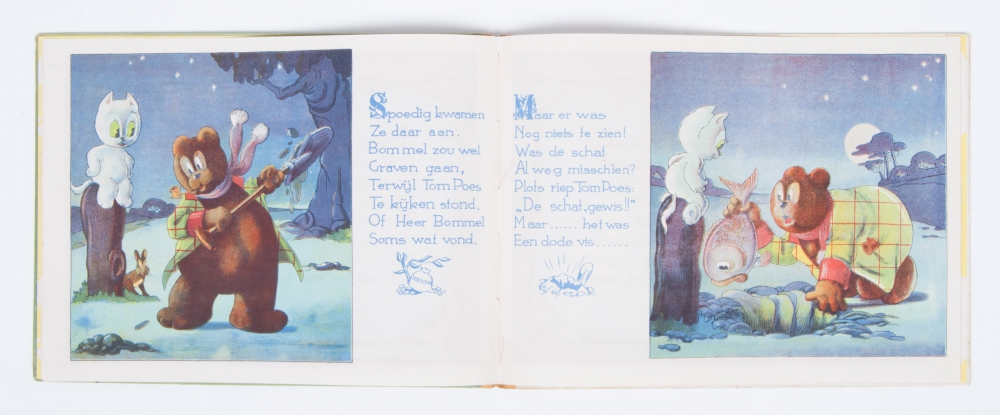 Spoedig kwamen
Ze daar aan.
Bommel zou wel
Graven gaan,
Terwÿl Tom Poes
Te kÿken stond,
Of Heer Bommel
Soms wat vond.
Maar er was
Nog niets te zien!
Was de schat
Al weg misschien?
Plots riep Tom Poes:
„De schat, gewis!!"
Maar...... het was
Een dode vis......